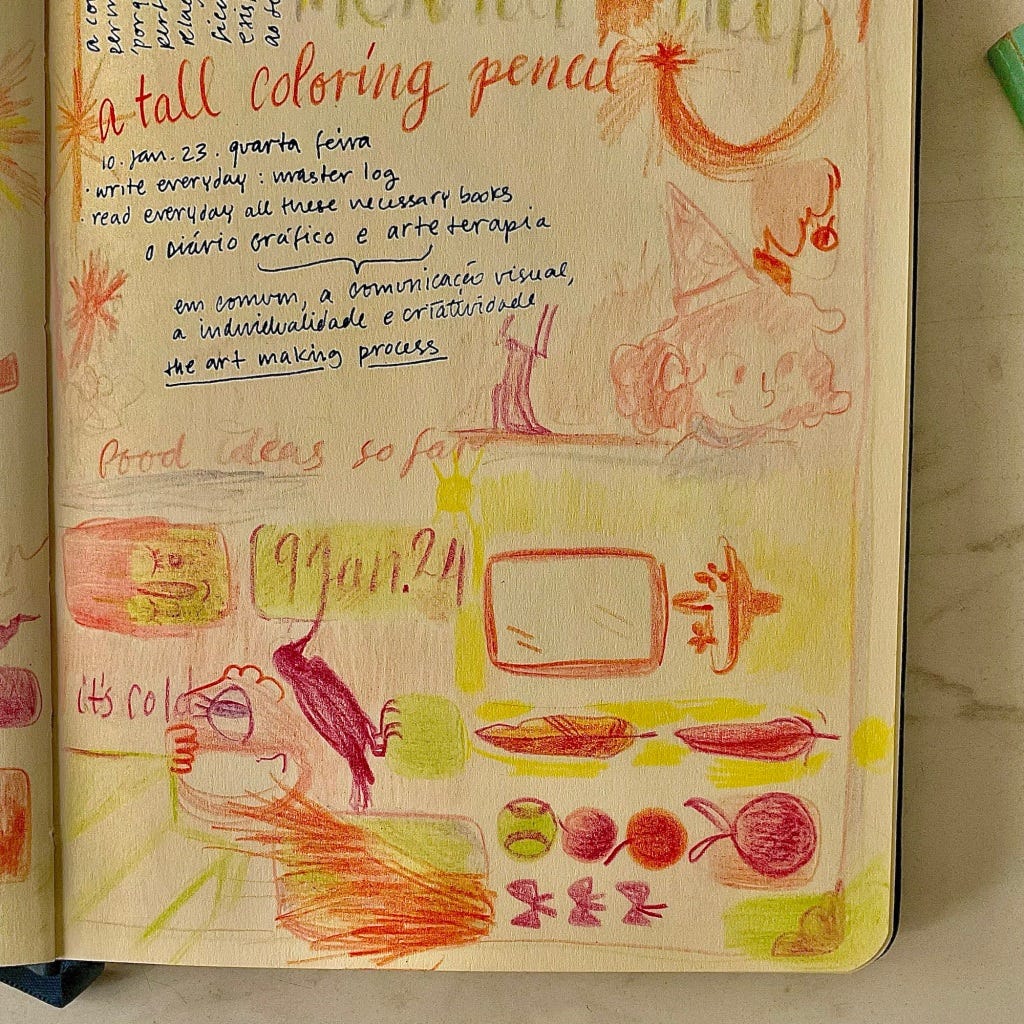 Help!
a tall coloring pencil
10. Jan. 23. quarta feira
· write everyday : master log
· read everyday all these necessary books
o Diário Gráfico e arte terapia
em comum, a comunicação visual,
a individualidade e criatividade
the art making process
Pood ideas so far
9 Jan. 24
it's cold